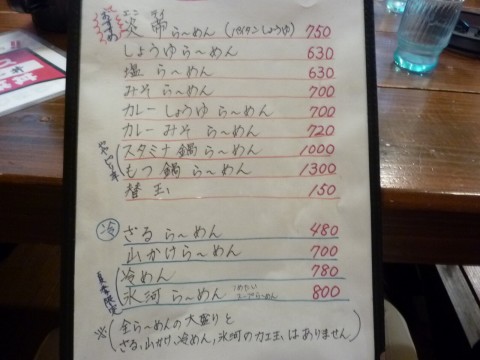 おすすめ
エン テイ
炎帝ら～めん (パイタンしょうゆ) 750
しょうゆら～めん 630
塩ら～めん 630
みそら～めん 700
カレーしょうゆら～めん 700
カレーみそら～めん 720
スタミナ鍋ら～めん 1000
もつ鍋ら～めん 1300
替玉 150
冷
ざるら～めん 480
山かけら～めん 700
冷めん 780
氷河ら～めん つめたいスープら～めん 800
※(全ら～めんの大盛りと
ざる、山かけ、冷めん、氷河のカエ玉はありません)